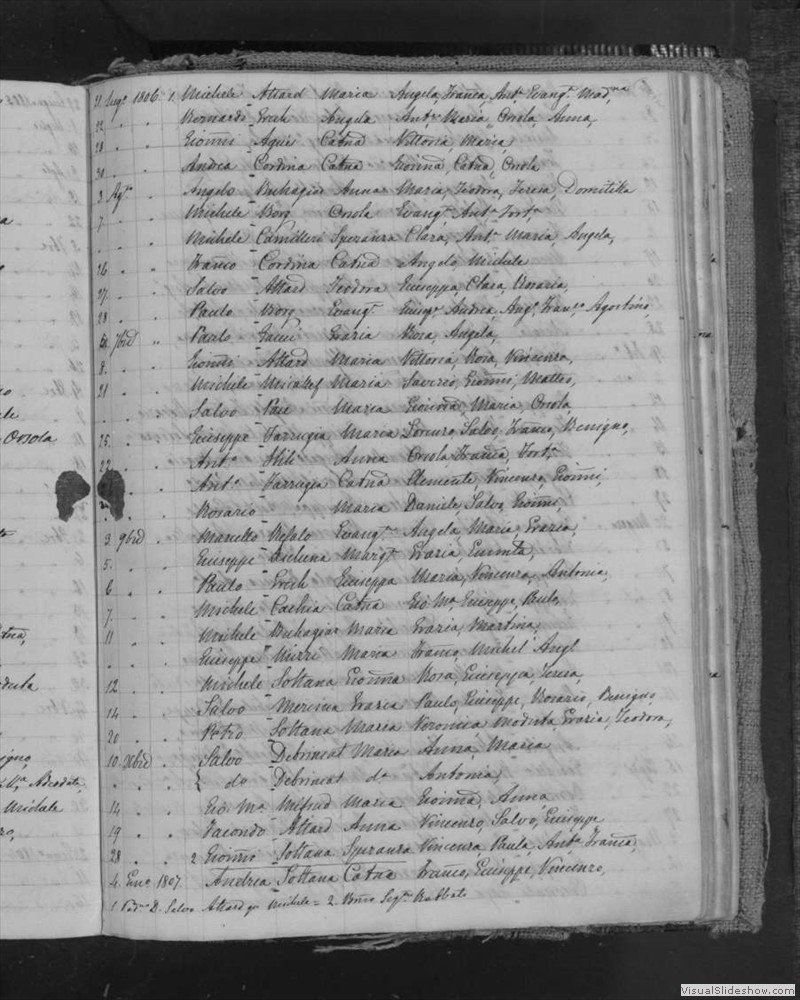 21 Lug.o 1806. 1. Michele Attard Maria Angela, Fran.ca, Ant.a Evang.ta Mad.na
22 . . Bernardo Grech Angela Ant.a Maria, Orsola, Anna,
28 . . Gio͞nni Agius Cat͞na Vittoria, Maria,
30 . . Andrea Cordina Cat͞na Gio͞nna, Cat͞na, Orsola
3 Ag.to . Angelo Buhagiar Anna Maria, Teodora, Teresa, Domitilla
7 . . Michele Borg Orsola Evang.ta Ant.a Fort.a
. . . Michele Camilleri Speranza Clara, Ant.a Maria, Angela,
26 . . Franco Cordina Cat͞na Angelo, Michele
27 . . Salvo Attard Teodora Giuseppa, Clara, Rosaria,
28 . . Paulo Borg Evang.ta Andrea, Agostino,
7bre Paulo Gauci Grazia Rosa, Angela,
8 . . Gio͞nni Attard Maria Vittoria, Rosa, Vincenza,
21 . . Michele Micallef Maria Saverio, Gio͞nni, Matteo,
. . . Salvo Pace Maria Gio͞nna, Maria, Orsola,
25 . . Giuseppe Farrugia Maria Lorenzo, Salvo, Franco, Benigno,
27 . . Ant.o Hili Anna Orsola, Fran͞ca, Fort.a
. . . Ant.o Farrugia Cat͞na Clemente, Vincenzo, Gio͞nni,
. . . Rosario Maria Daniele, Salvo, Gio͞nni,
3. 9bre . Marcello Refalo Evang.ta Angela, Maria, Grazia,
5. . . Giuseppe Xicluna Marg.ta Grazia,
6 . . Paulo Grech Giuseppa Maria, Vincenza, Antonia,
7. . . Michele Cachia Cat͞na Gio M.a Giuseppe, Paulo,
11 . . Michele Buhagiar Maria Grazia, Martina,
. . . Giuseppe Mizzi Maria Franco, Michel Ang.l
12 . . Michele Soltana Gio͞nna Rosa, Giuseppa Teresa,
14 . . Salvo Mercieca Grazia Paulo, Giuseppe, Rosario, Benigno,
20 . . Petro Soltana Maria Veronica Modesta, Grazia, Teodora,
10. Xbre . Salvo Debrincat Maria Anna, Maria
. . . { do Debrincat do Antonia,
14 . . Gio. M.a Mifsud Maria Gio͞nna, Anna
19 . . Facondo Attard Anna Vincenzo, Salvo, Giuseppe
28 . . 2. Gio͞nni Soltana Speranza Vincenza, Paula, Ant.a Fran͞ca,
4. Gen.o 1807. Andrea Soltana Cat͞na Franco, Giuseppe, Vincenzo,
1. Pad.no D. Salvo Attard Michele = 2.
Orsola
Michele
VisualSlideshow.com